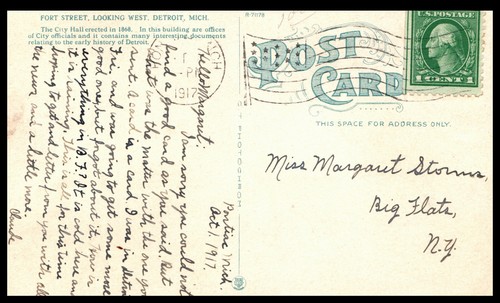 FORT STREET, LOOKING WEST, DETROIT, MICH.
The City Hall erected in 1860. In this building are offices
of City officials and it contains many interesting documents
relating to the early history of Detroit.
R-7075
POST
CARD
U.S. POSTAGE
1 CENT 1
MICH
PM
1917
THIS SPACE FOR ADDRESS ONLY.
Pontiac Mich.
Oct 1, 1917.
Hello Margaret:
I am sorry you could not
find a good card as you said. But
what was the matter with the one you
sent. A card is a card. I was in Detroit
and was going to get some more
good ones, but forgot about it. How is
everything in B.F.? It is cold here and
it is raining. This is all for this time
hoping to get and letter from you with all
the news and a little more.
Claude
Miss Margaret Storms,
Big Flats,
N.Y.